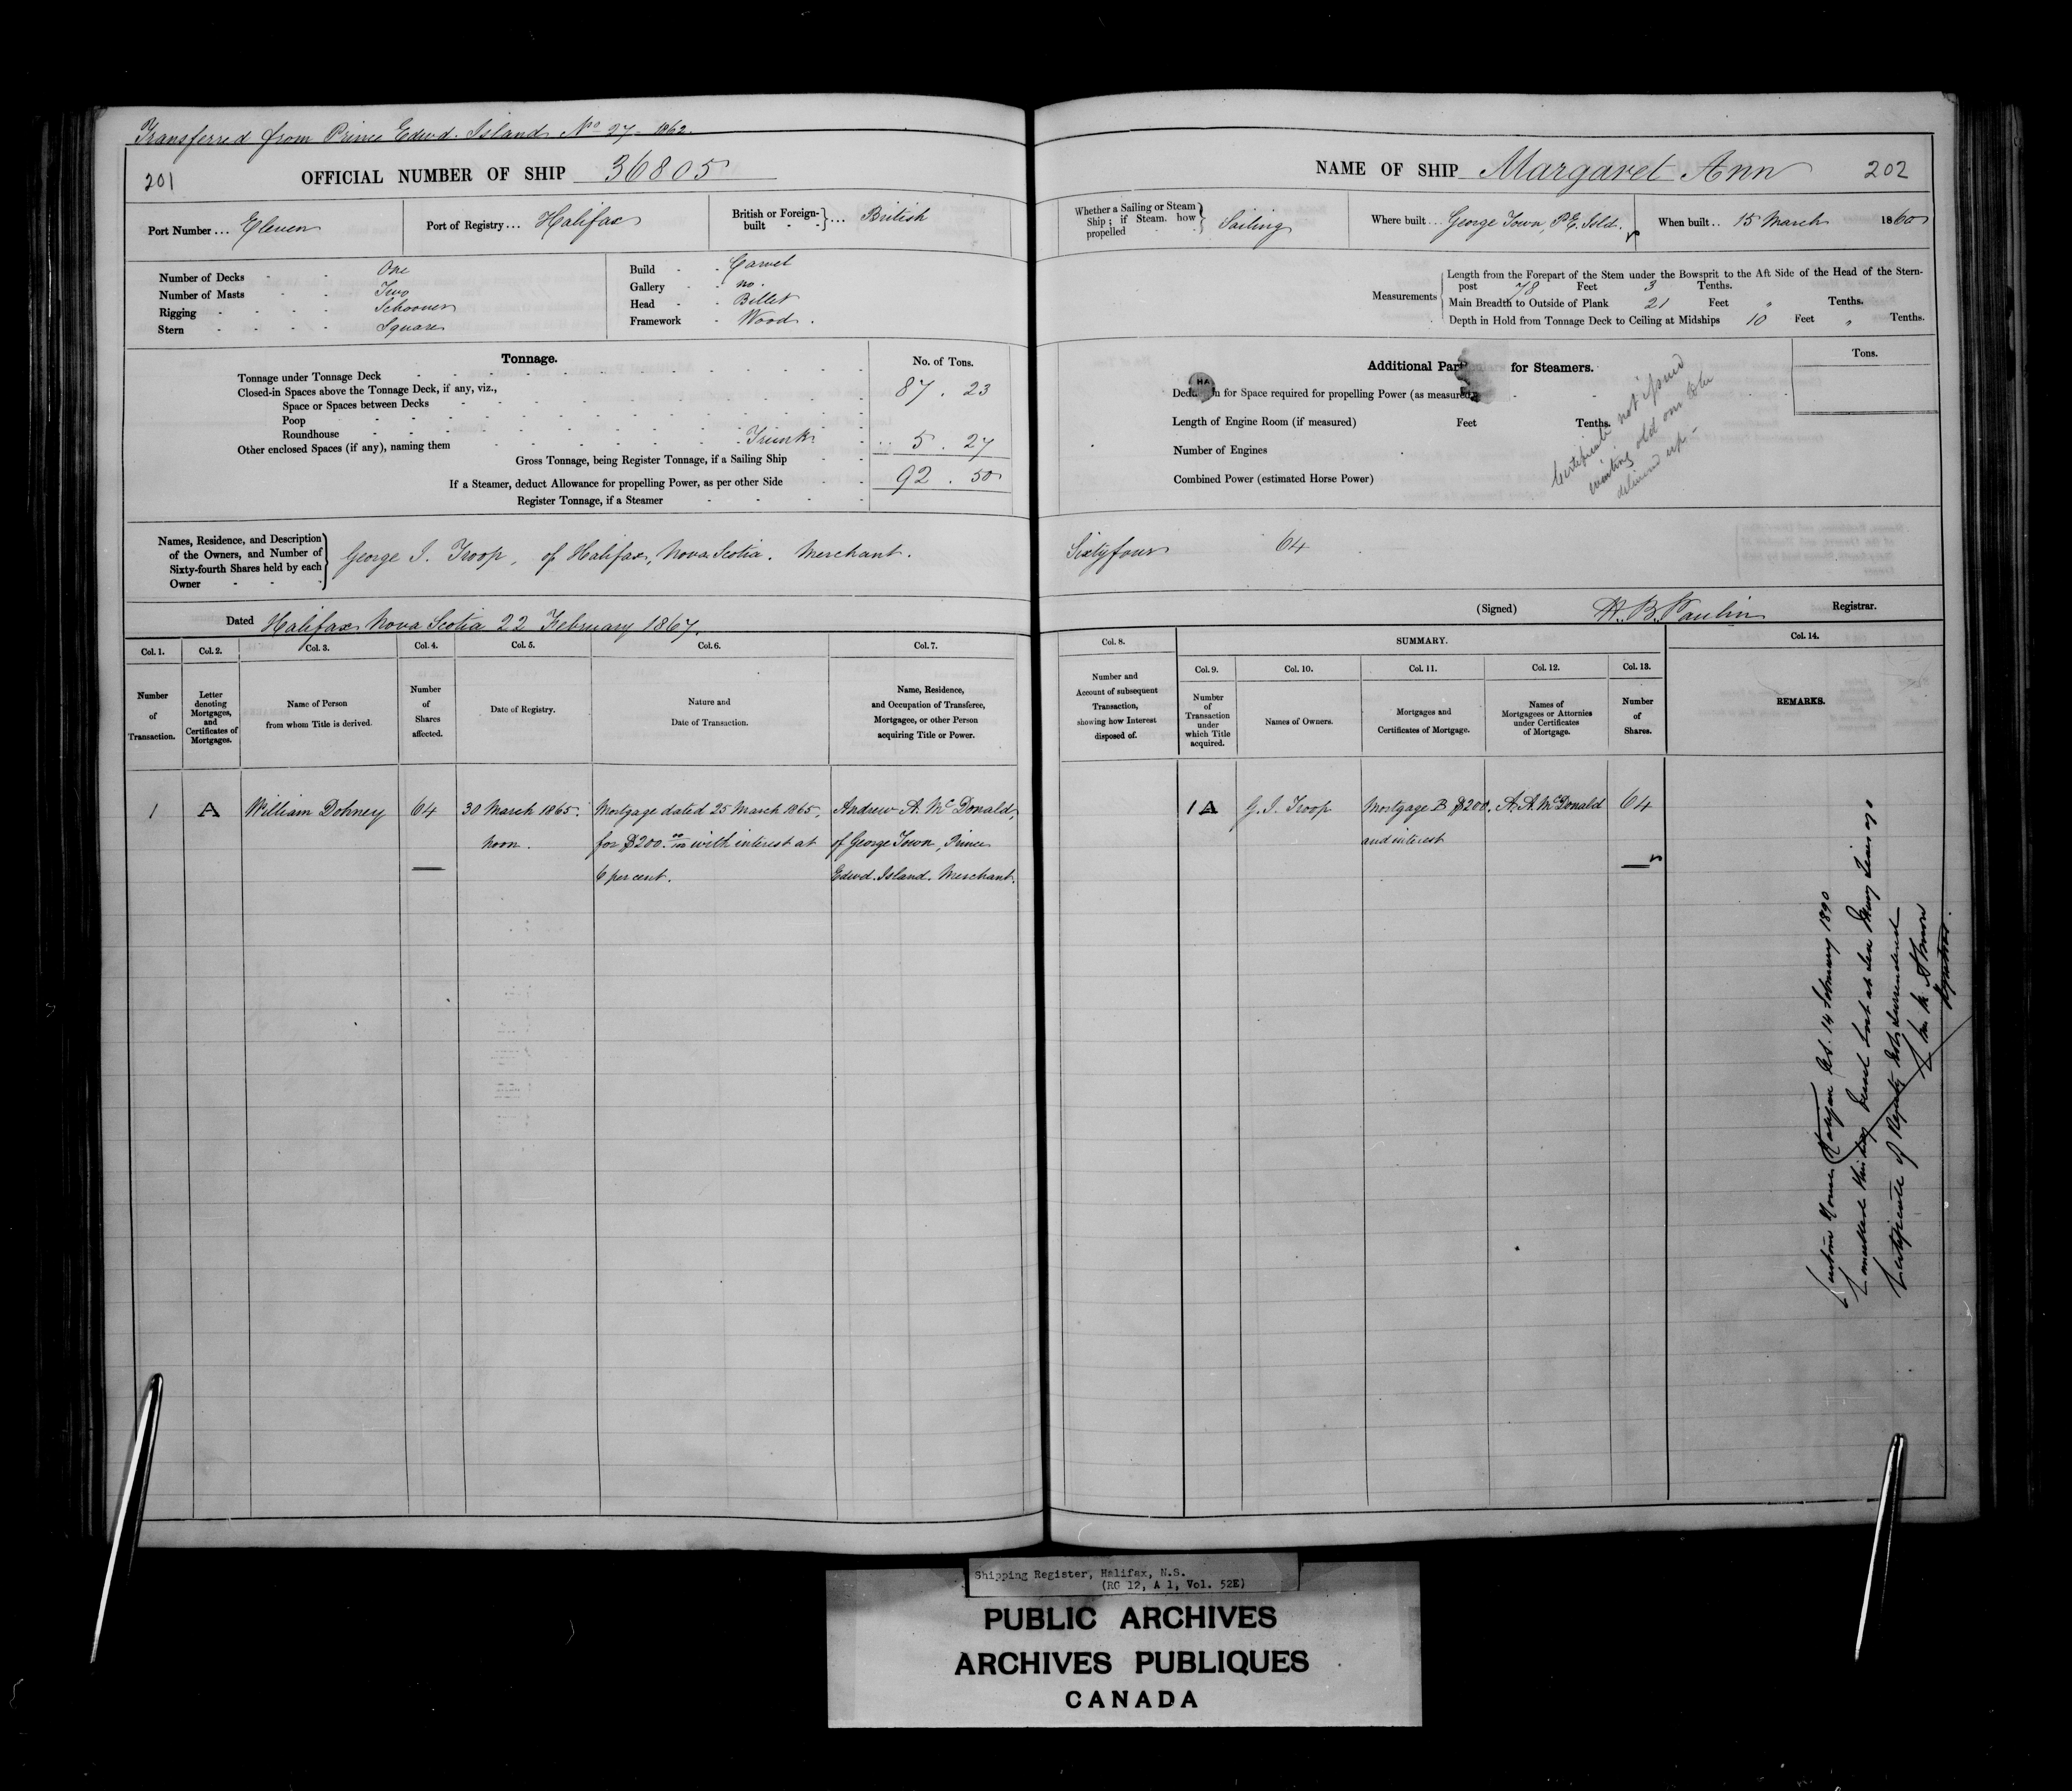 Transferred from Prince Edwd. Island No 27. 1862.
201
OFFICIAL NUMBER OF SHIP 36805
Port Number ... Eleven
Port of Registry ... Halifax
British or Foreign-built ... British
Number of Decks - - One
Number of Masts - - Two
Rigging - - - - Schooner
Stern - - - - Square
Build - - Carvel
Gallery - - no.
Head - - Billet
Framework - Wood.
Tonnage.
No. of Tons.
Tonnage under Tonnage Deck 87. 23
Closed-in Spaces above the Tonnage Deck, if any, viz.,
Space or Spaces between Decks
Poop
Roundhouse
Other enclosed Spaces (if any), naming them Trunk 5. 27
Gross Tonnage, being Register Tonnage, if a Sailing Ship 92. 50
If a Steamer, deduct Allowance for propelling Power, as per other Side
Register Tonnage, if a Steamer
Names, Residence, and Description of the Owners, and Number of Sixty-fourth Shares held by each Owner
George J. Troop, of Halifax, Nova Scotia. Merchant.
Dated Halifax Nova Scotia 22 February 1867.
Col. 1. Col. 2. Col. 3. Col. 4. Col. 5. Col. 6. Col. 7.
Number of Transaction.
Letter denoting Mortgages, and Certificates of Mortgages.
Name of Person from whom Title is derived.
Number of Shares affected.
Date of Registry.
Nature and Date of Transaction.
Name, Residence, and Occupation of Transferee, Mortgagee, or other Person acquiring Title or Power.
1 A William Dohney 64 30 March 1865. Mortgage dated 25 March 1865, Andrew A. McDonald,
noon. for $200. 00/100 with interest at of George Town, Prince
6 per cent. Edwd. Island. Merchant.
NAME OF SHIP Margaret Ann
202
Whether a Sailing or Steam Ship; if Steam. how propelled Sailing
Where built ... George Town, P.E. Isld.
When built .. 15 March 1860
Measurements
Length from the Forepart of the Stem under the Bowsprit to the Aft Side of the Head of the Stern-
post 78 Feet 3 Tenths.
Main Breadth to Outside of Plank 21 Feet " Tenths.
Depth in Hold from Tonnage Deck to Ceiling at Midships 10 Feet " Tenths.
Additional Particulars for Steamers.
Tons.
HA
for Space required for propelling Power (as measured)
Length of Engine Room (if measured) Feet Tenths.
Number of Engines
Combined Power (estimated Horse Power)
Certificate not issued
waiting old one to be
delivered up -
Sixtyfour 64
(Signed) H. B. Paulin Registrar.
Col. 8. SUMMARY. Col. 14.
Col. 9. Col. 10. Col. 11. Col. 12. Col. 13.
Number and Account of subsequent Transaction, showing how Interest disposed of.
Number of Transaction under which Title acquired.
Names of Owners.
Mortgages and Certificates of Mortgage.
Names of Mortgagees or Attornies under Certificates of Mortgage.
Number of Shares.
REMARKS.
1 A G. J. Troop Mortgage B $200. A. A. McDonald 64
and interest
Custom House Halifax N.S. 14 February 1890
Cancelled this day Vessel lost at sea Many Years ago
Certificate of Registry not surrendered
Registrar.
Shipping Register, Halifax, N.S.
(RG 12, A 1, Vol. 52E)
PUBLIC ARCHIVES
ARCHIVES PUBLIQUES
CANADA